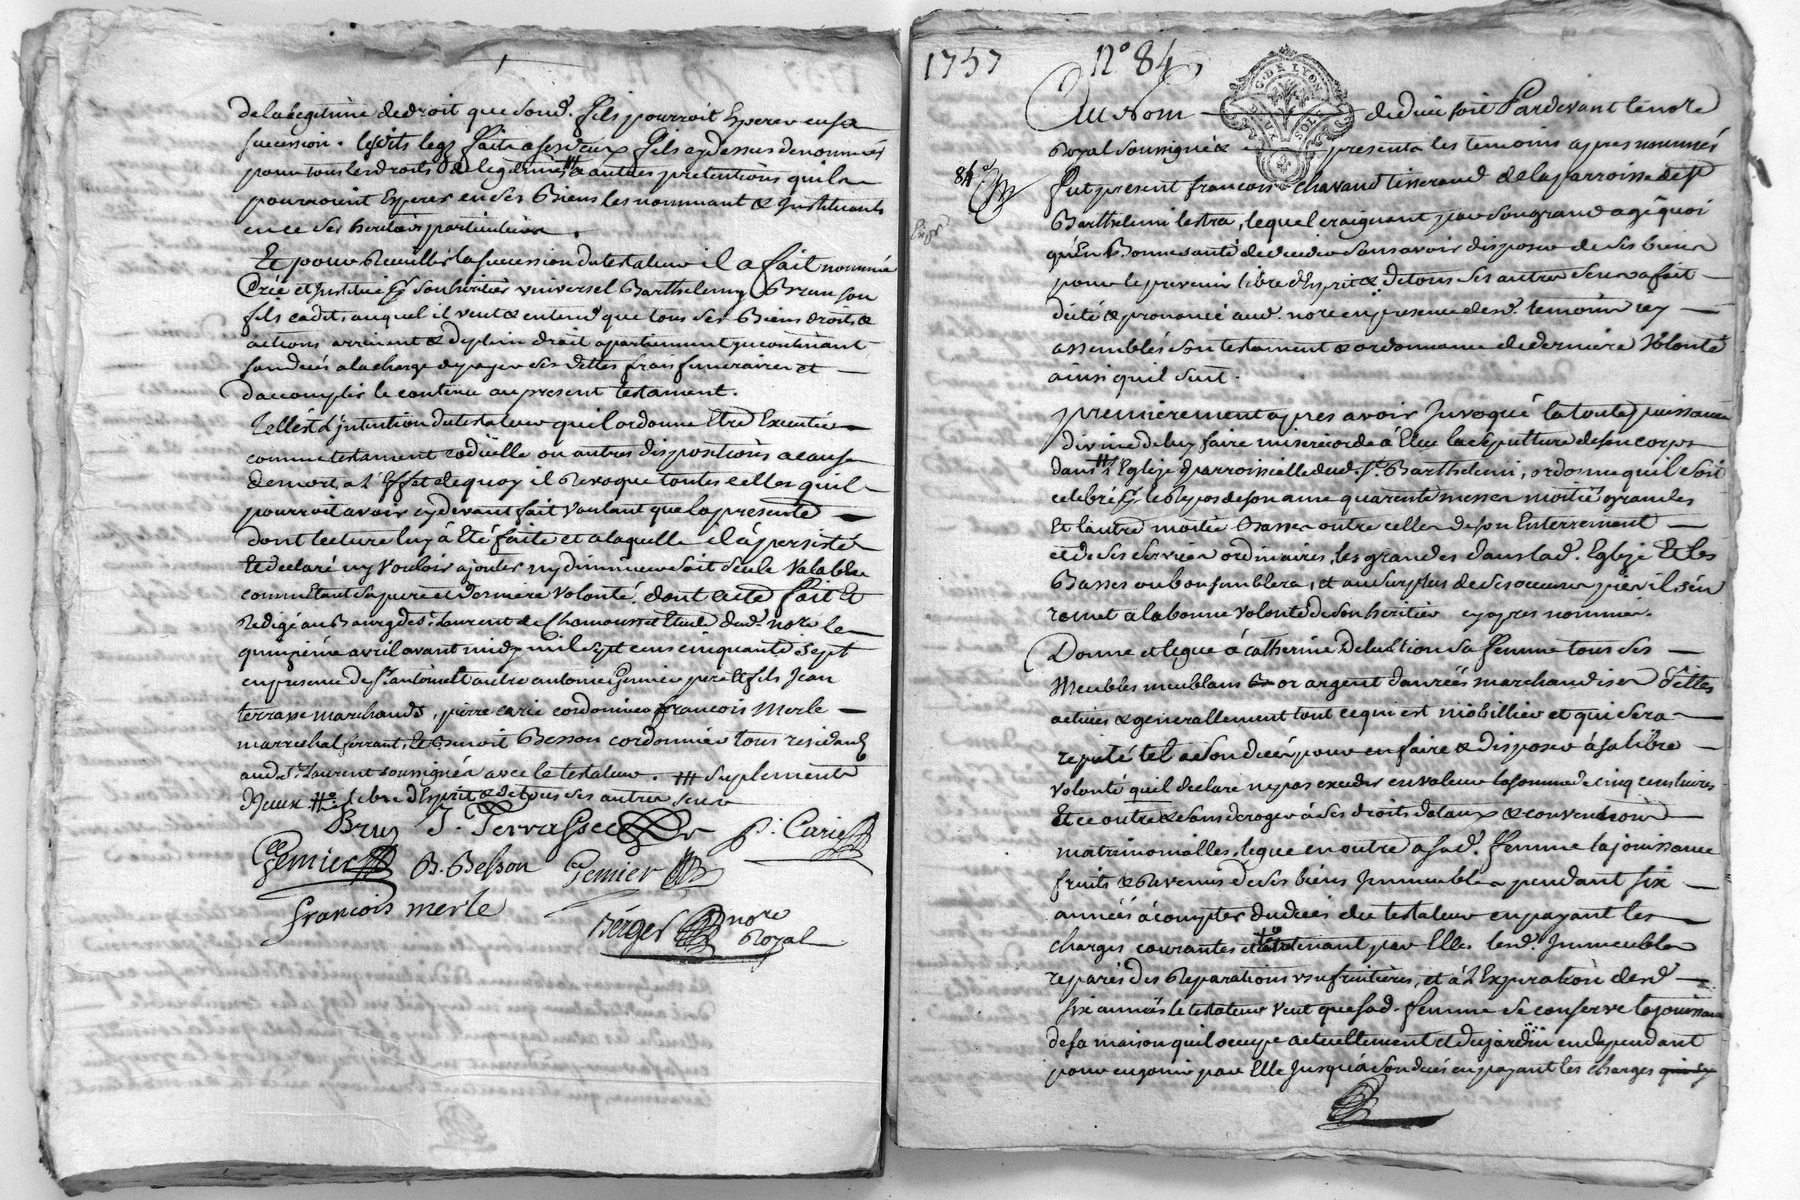 de la legitime de droit que sond. fils pourroit Esperer en sa
succession. lesdits legs faits a ses deux fils cy dessus denommés
pour tous les droits de legitimes # & autres pretentions quils
pourroient Esperer en ses Biens les nommant & Instituants
en ce ses heritiers particuliers.
Et pour Recuillir la succession du testateur il a fait nommé
Créé et Institué pr son heritier universel Barthelemy Brun son
fils cadit, auquel il veut & entend que tous ses Biens droits &
actions arrivent & de plein droit apartiennent incontinant
son decés a la charge de payer ses dettes frais funeraires et
Daccomplir le contenu au present testament.
Telle est L'jntention du testateur qu'il ordonne Etre Executée
comme testament codicille ou autres dispositions a cause
de mort, a L'Effet de quoy il Revoque toutes celles quil
pourroit avoir cy devant fait voulant que la presente
dont lecture luy à Eté faite et a laquelle il à persisté
Et declaré n'y vouloir ajouter ny diminuer soit seule valable
commetant sa pure et derniere volonté, dont acte fait Et
Redigé au Bourg de St. Laurent de Chamousset Etude dud. nore le
quinzieme avril avant midy mil sept cens cinquante sept
en presence de Sr. antoine et autre antoine Gemier pere & fils Jean
terrasse marchands, pierre carié cordonnier francois Merle
marrechal ferrant, Et Benoit Besson cordonnier tous residants
aud. St. Laurent soussignés avec le testateur. # suplements
Deux # Libre d'Esprit & de tous ses autres sens
Brun J. Terrasse P. Carié
Gemier B. Besson Gemier
francois merle
Berger nore
Royal
1757 n° 84
G. DE LYON
Au Nom de dieu soit Pardevant le nore
Royal soussigné & presents les temoins apres nommés
84
fut present francois chavand tisserand de la parroisse de St
Barthelemi lestra, lequel craignant par son grand age quoi
qu'En Bonne santé de deceder sans avoir disposer de ses biens
pour le prevenir libre d'Esprit & de tous ses autres sens a fait
dicté & prononcé aud. nore en presence desd. temoins icy
assemblés son testament & ordonnance de derniere Volonté
ainsi quil suit.
premierement apres avoir Invoqué la toute puissance
divine de luy faire misericorde à Eleu la sepulture de son corps
dans # l'Eglize parroissielle dud. St. Barthelemi, ordonne qu'il soit
celebré pr le Repos de son ame quarente messes moitié grandes
Et l'autre moitié Basses outre celles de son Enterrement
et de ses services ordinaires, les grandes dans lad. Eglize Et les
Basses ou bon semblera, et au surplus de ses oeuvres pies il s'en
remet a la bonne volonté de son heritier cy apres nommé.
Donne et legue à catherine Delution sa femme tous ses
Meubles meublans or argent danrées marchandises dettes
actives & generallement tout ce qui est mobillier et qui sera
reputé tel a son decés pour en faire & disposer à sa libre
volonté quil declare ne pas exceder en valeur la somme de cinq cens livres
Et ce outre & sans deroger à ses droits dotaux & conventions
matrimonialles, legue en outre a sad. femme la jouissance
fruits & Revenus de ses biens Immeubles pendant six
années à compter du decés du testateur en payant les
charges courantes et entretenant par Elle lesd. Immeubles
reparés des Reparations usufruitieres, et à l'Expiration desd.
six années le testateur veut que sad. femme se conserve la jouissance
de sa maison quil occupe actuellement et du jardin en dependant
pour en jouir par Elle Jusqu'à son decés en payant les charges